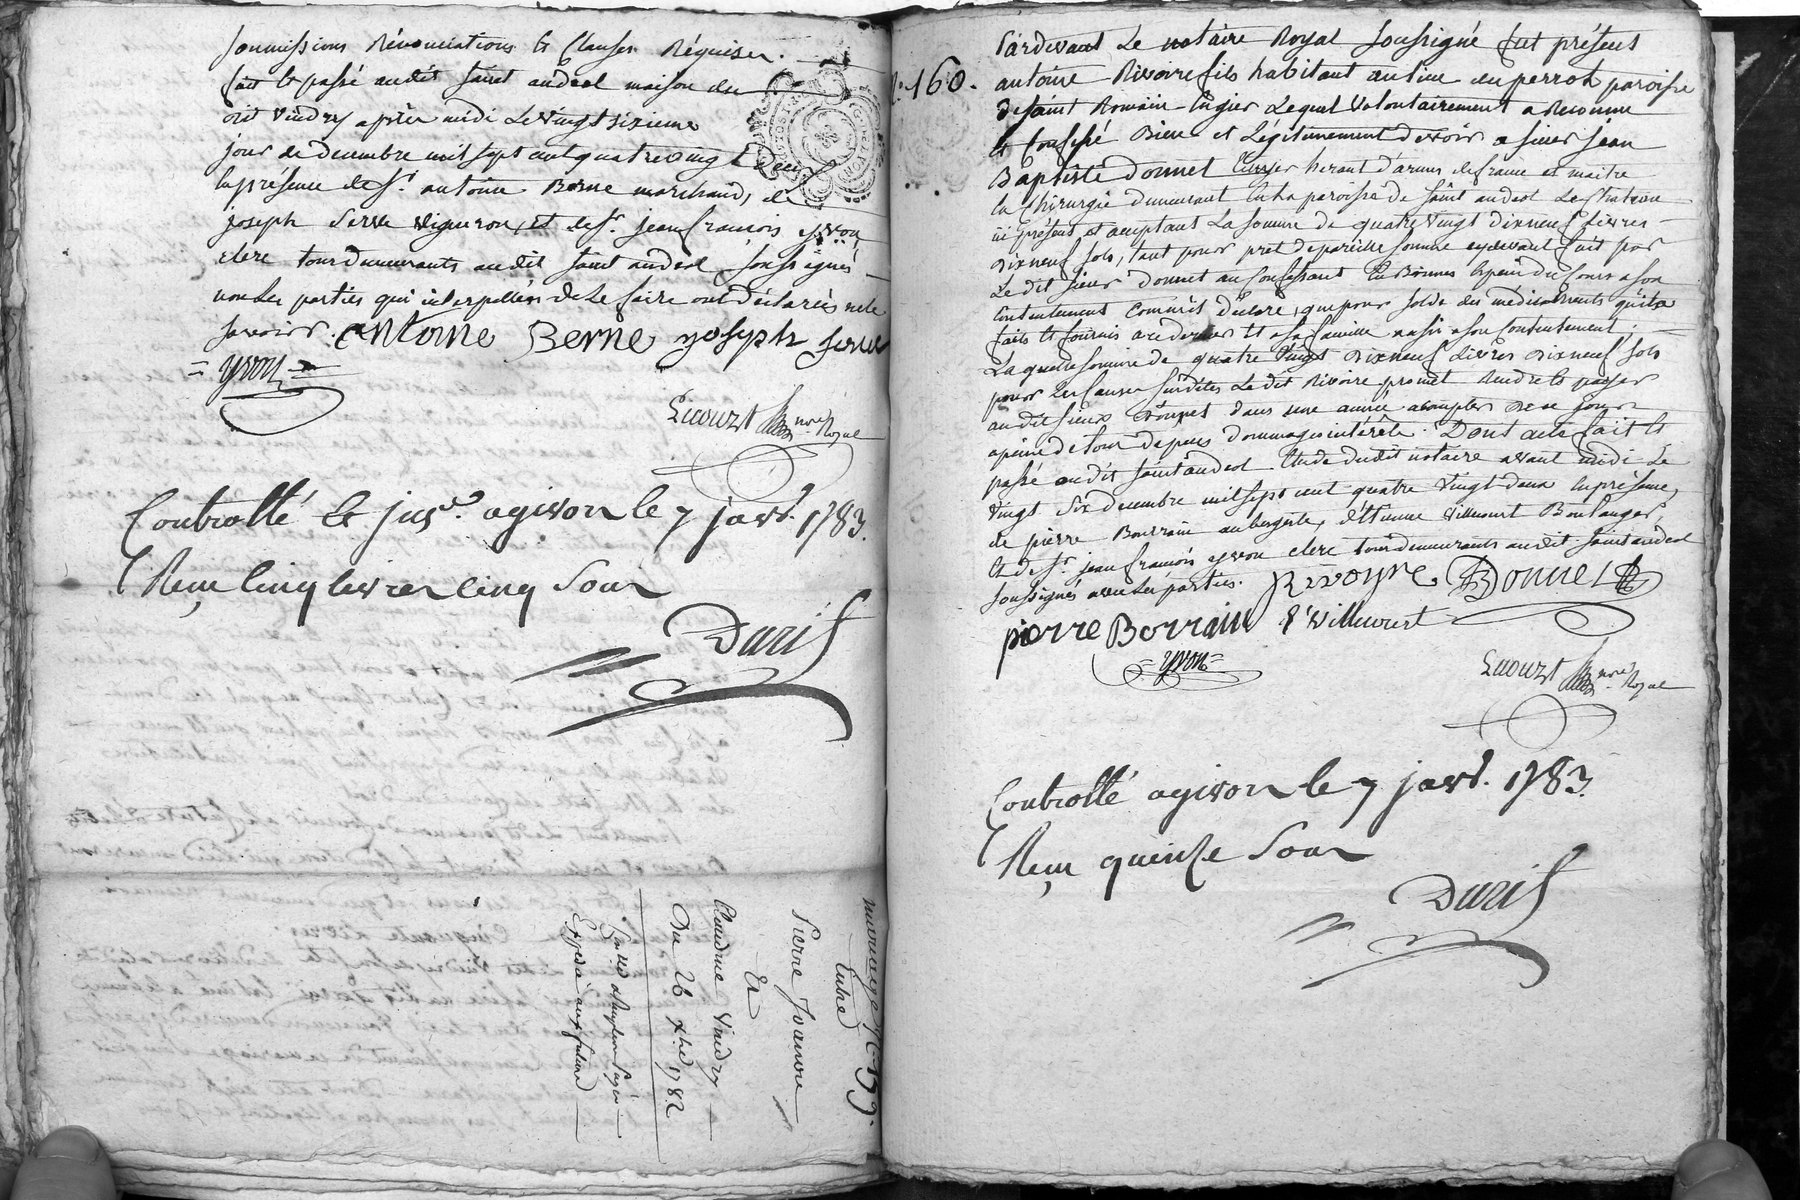 soumissions Rénonciations & Clauses Réquises.
fait & passé audit saint andeol maison du
dit vindry aprèz midi Le vingt sixieme
jour de decembre mil sept cent quatre vingt Deux
En présence de Sr. antoine Berne marchand, de
joseph Serve vigneron, et de Sr. jean françois yvon
clerc tous demeurants audit saint andeol soussignés
non Les parties qui interpellées de Le faire ont déclarées ne le
savoir. antoine Berne joseph serve
= yvon =
Lecourt nore. Royal
Controllé le jus'e. a givors le 7 janv. 1783.
Reçu Cinq livres cinq Sous
Duris
mariage N.° 159.
Entre
Pierre Jvanne
Et
Claudine vindry
Du 26 xbre 1782
Expedié aux future
N.° 160.
Pardevant Le notaire Royal soussigné fut présent
antoine Rivoire fils habitant au lieu du perrot paroisse
de saint Romain en gier Lequel volontairement a Reconnu
& Confessé Bien et Légitimement devoir a sieur jean
Baptiste Donnet Ecuyer heraut d'armes de france et maitre
En Chirurgie demeurant En La paroisse de saint andeol Le Chateau
ici présent et acceptant La somme de quatre vingt dix neuf Livres
dix neuf sols, tant pour pret de pareille somme cy devant fait par
Le dit sieur donnet au Confessant En Bonnes Espèces du Cours a son
Contentement Comm'il déclare, que pour solde des médicaments qu'il a
faits & fournis au dernier & a sa famille aussi a son Contentement;
La quelle somme de quatre vingt Dix neuf Livres dix neuf sols
pour Les Causes susdites Le dit Rivoire promet Rendre & payer
audit sieur donnet dans une année a compter de ce jour
a peine de tous depens dommages intérêts. Dont acte fait &
passé audit saint andeol Etude du dit notaire avant midi Le
vingt six decembre mil sept cent quatre vingt deux En présence
de pierre Bourrain aubergiste, d'Ettienne villecourt Boulanger,
& de Sr. jean françois yvon clerc tous demeurants audit saint andeol
soussignés avec Les parties. Rivoyre Donnet
pierre Borrain E villecourt
= yvon =
Lecourt nore. Royal
Controllé a givors le 7 janv. 1783.
Reçu quinze Sous
Duris